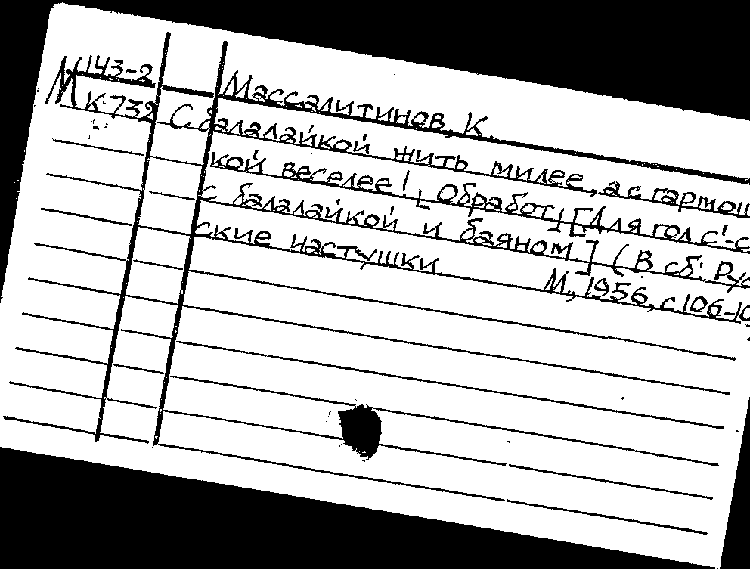 М 143-2
К-732
Массалитинов, К.
С балалайкой жить милее, а с гармош
кой веселее! [Обработ.] [Для гол с 
с балалайкой и баяном.] (В сб: Рус
ские частушки М., 1956, с. 106-10